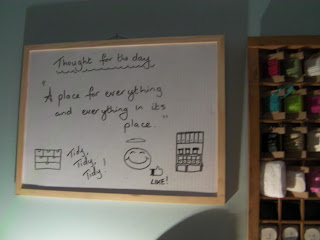 Thought for the day
"A place for everything
and everything in its
place."
Tidy,
Tidy,
Tidy!
LIKE!